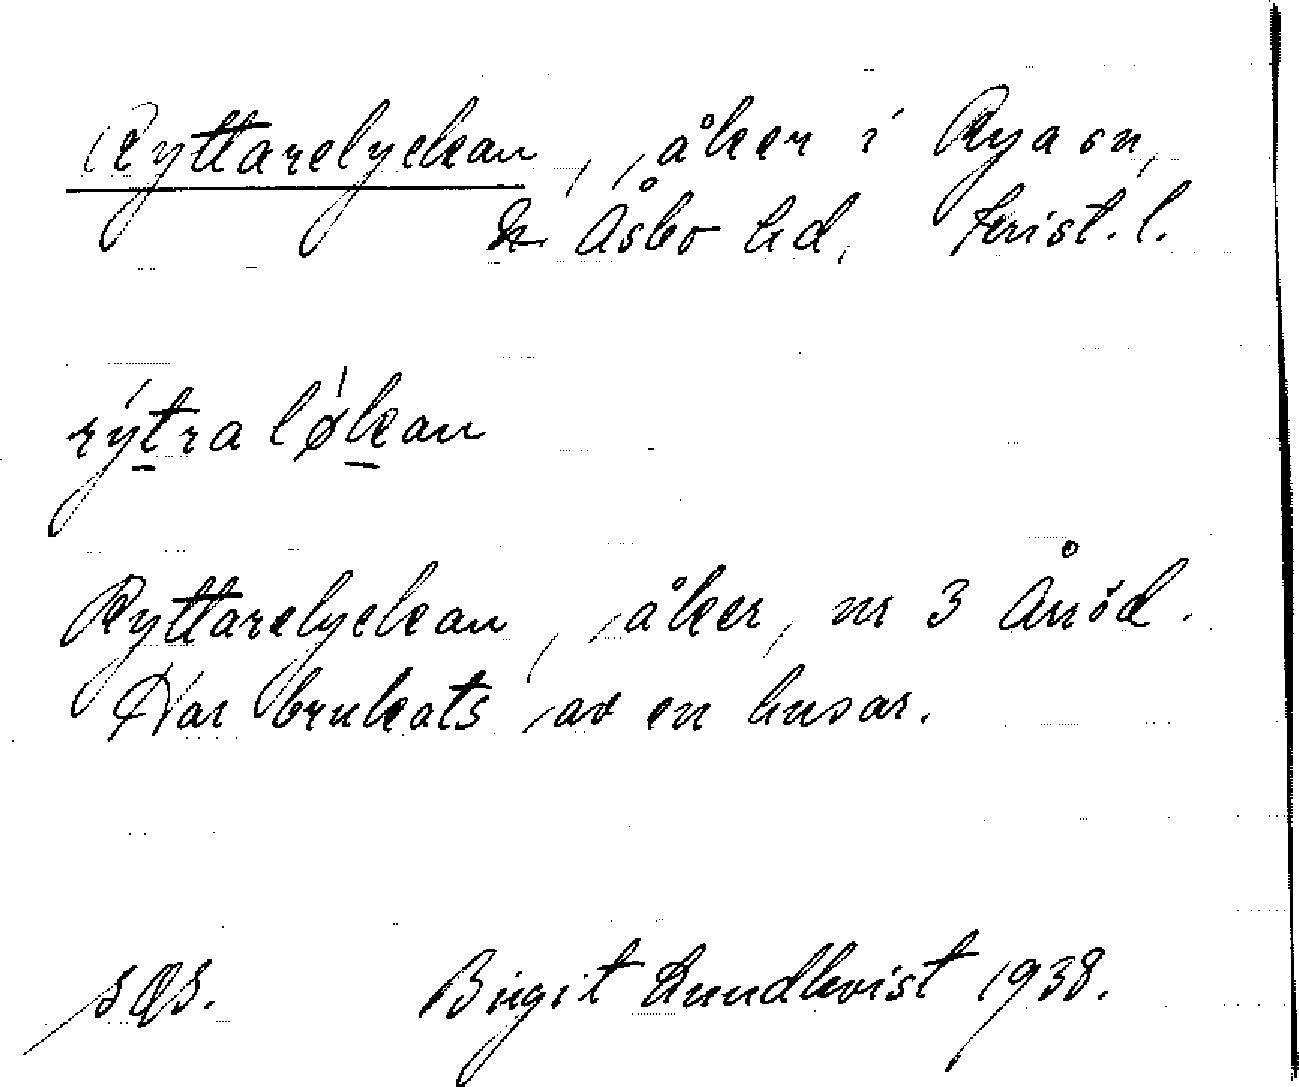 Ryttarelyckan, åker i Rya sn,
N. Åsbo hd, Krist. l.
rýtralǿkan
Ryttarelyckan, åker, nr 3 Åröd.
Har brukats av en husar.
Birgit Lundkvist 1938.